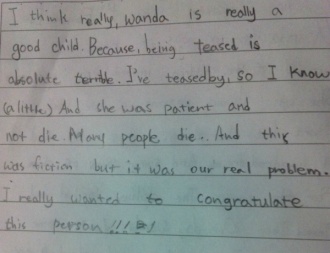 I think really, Wanda is really a
good child. Because, being teased is
absolute terrible. I've teasedby, so I know
(a little) And she was patient and
not die. Many people die.. And this
was fiction but it was our real problem.
I really wanted to congratulate
this person!!!